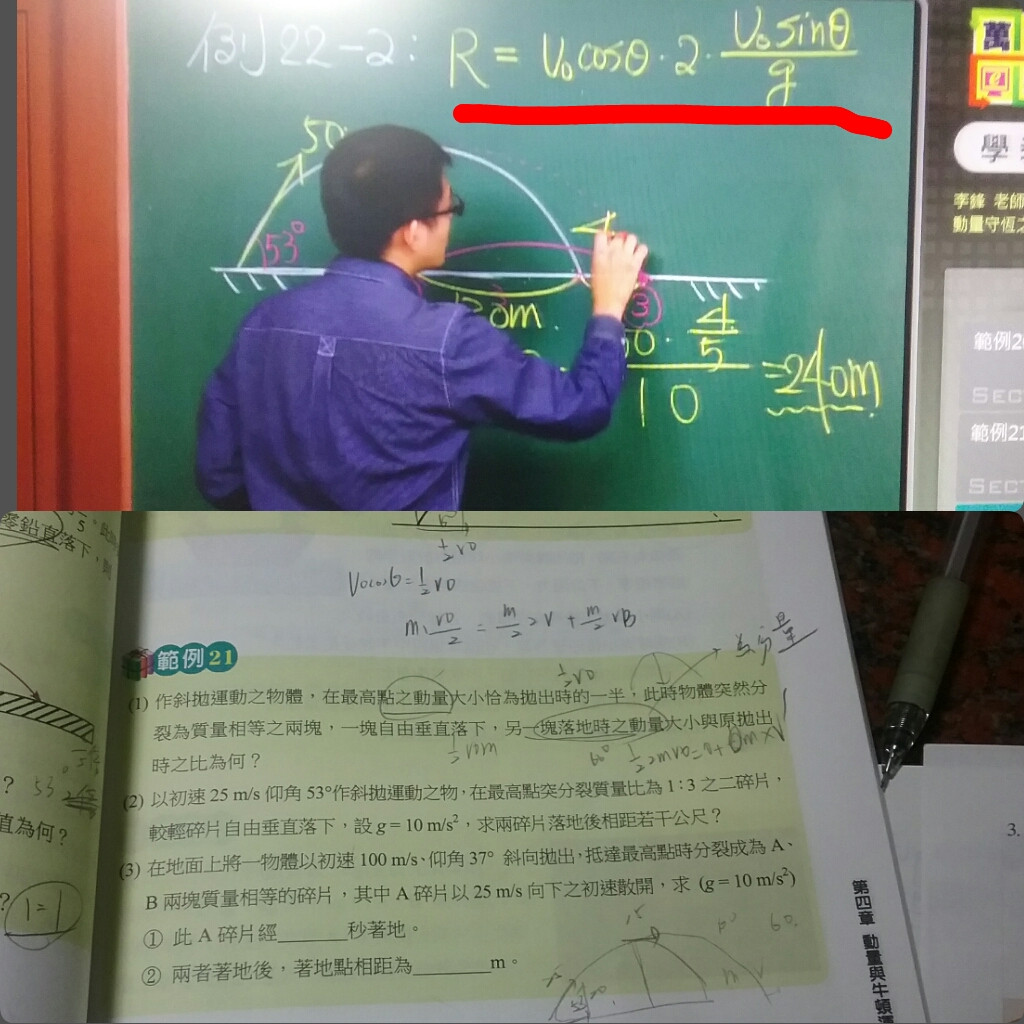 例22-2: R = V₀cosθ·2·V₀sinθ/g
萬
e
學
李鋒 老師
動量守恆之
50
53°
0m
③
50·4/5
10
=240m
範例20
SEC
範例21
SEC
零鉛直落下,則
½v0
V0cosθ=½v0
範例21
(1) 作斜拋運動之物體,在最高點之動量大小恰為拋出時的一半,此時物體突然分
裂為質量相等之兩塊,一塊自由垂直落下,另一塊落地時之動量大小與原拋出
時之比為何?
½v0
60°
(2) 以初速 25 m/s 仰角 53°作斜拋運動之物,在最高點突分裂質量比為 1:3 之二碎片,
較輕碎片自由垂直落下,設 g = 10 m/s²,求兩碎片落地後相距若干公尺?
(3) 在地面上將一物體以初速 100 m/s、仰角 37° 斜向拋出,抵達最高點時分裂成為 A、
B 兩塊質量相等的碎片,其中 A 碎片以 25 m/s 向下之初速散開,求 (g = 10 m/s²)
① 此 A 碎片經______秒著地。
② 兩者著地後,著地點相距為________m。
? 53°
值為何?
?
1=1
15
60.
3.
第四章 動量與牛頓運